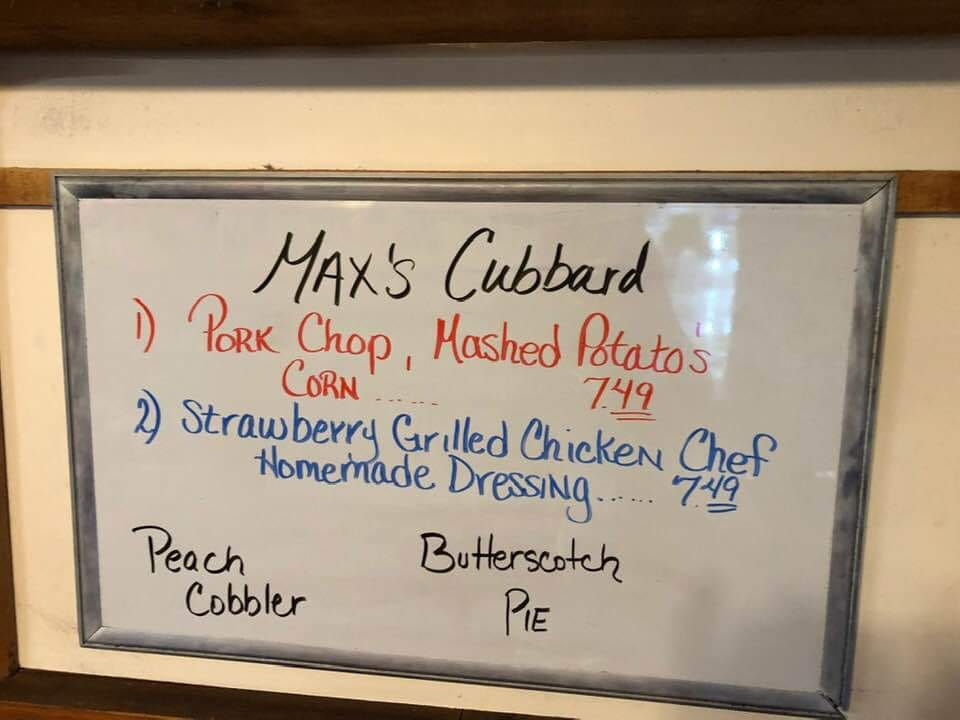 MAX'S Cubbard
1) PORK Chop, Mashed Potato's
CORN ...... 7.49
2) Strawberry Grilled Chicken Chef
Homemade Dressing...... 7.49
Peach Butterscotch
Cobbler PIE